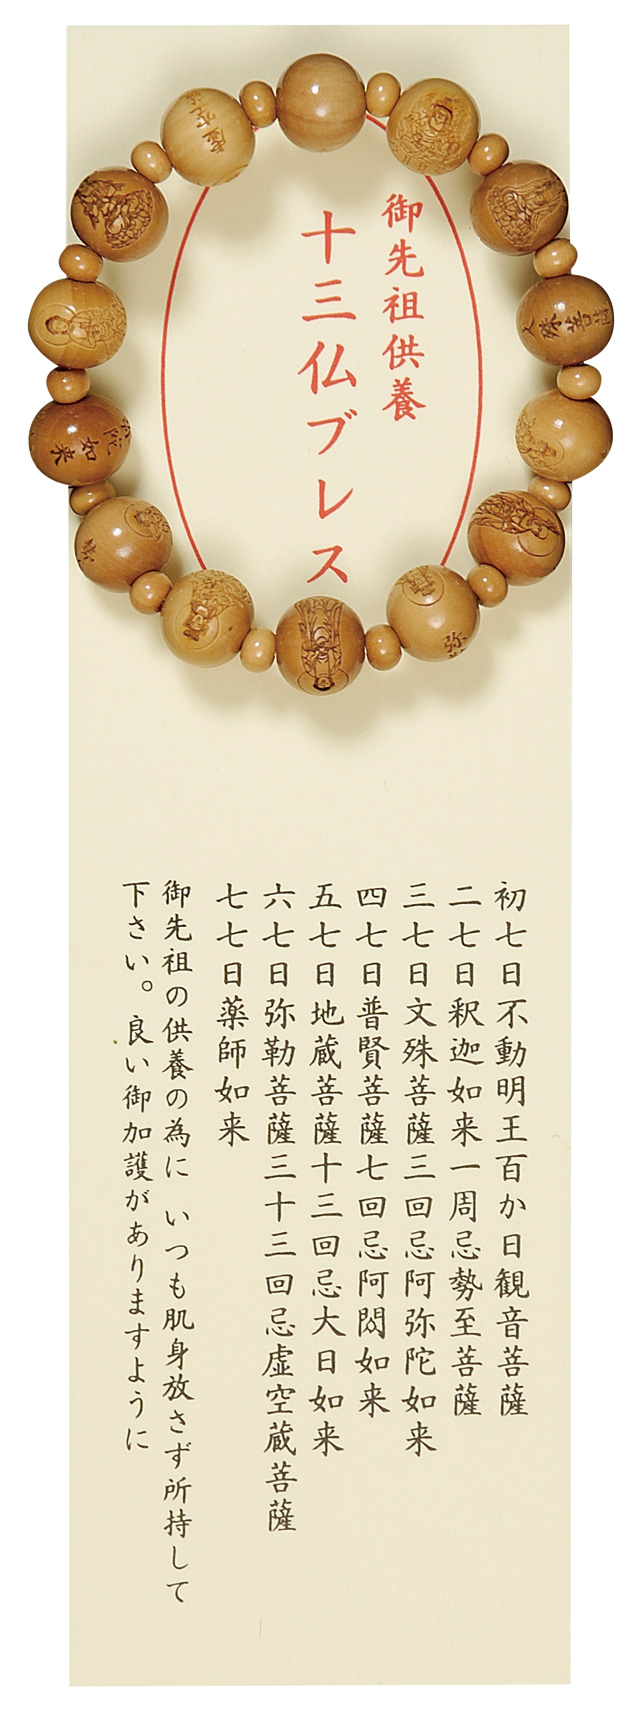 御先祖供養
十三仏ブレス
初七日不動明王百か日観音菩薩
二七日釈迦如来一周忌勢至菩薩
三七日文殊菩薩三回忌阿弥陀如来
四七日普賢菩薩七回忌阿閦如来
五七日地蔵菩薩十三回忌大日如来
六七日弥勒菩薩三十三回忌虚空蔵菩薩
七七日薬師如来
御先祖の供養の為に いつも肌身放さず所持して
下さい。良い御加護がありますように
殊菩
陀如来
弥